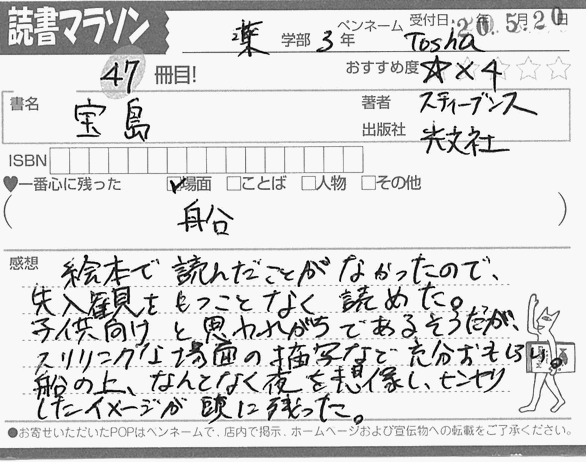 読書マラソン
薬 学部 3年 ペンネーム Tosha 受付日 20年5月20日
47冊目! おすすめ度 ☆×4 ☆☆☆
書名 宝島 著者 スティーブンス
出版社 光文社
ISBN
♥一番心に残った ☑場面 □ことば □人物 □その他
( 船 )
感想 絵本で読んだことがなかったので、
先入観をもつことなく読めた。
子供向けと思われがちであるそうだが、
スリリングな場面の描写など充分おもしろい。
船の上、なんとなく夜を想像し、ヒンヤリ
したイメージが頭に残った。
●お寄せいただいたPOPはペンネームで、店内で掲示、ホームページおよび宣伝物への転載をご了承ください。